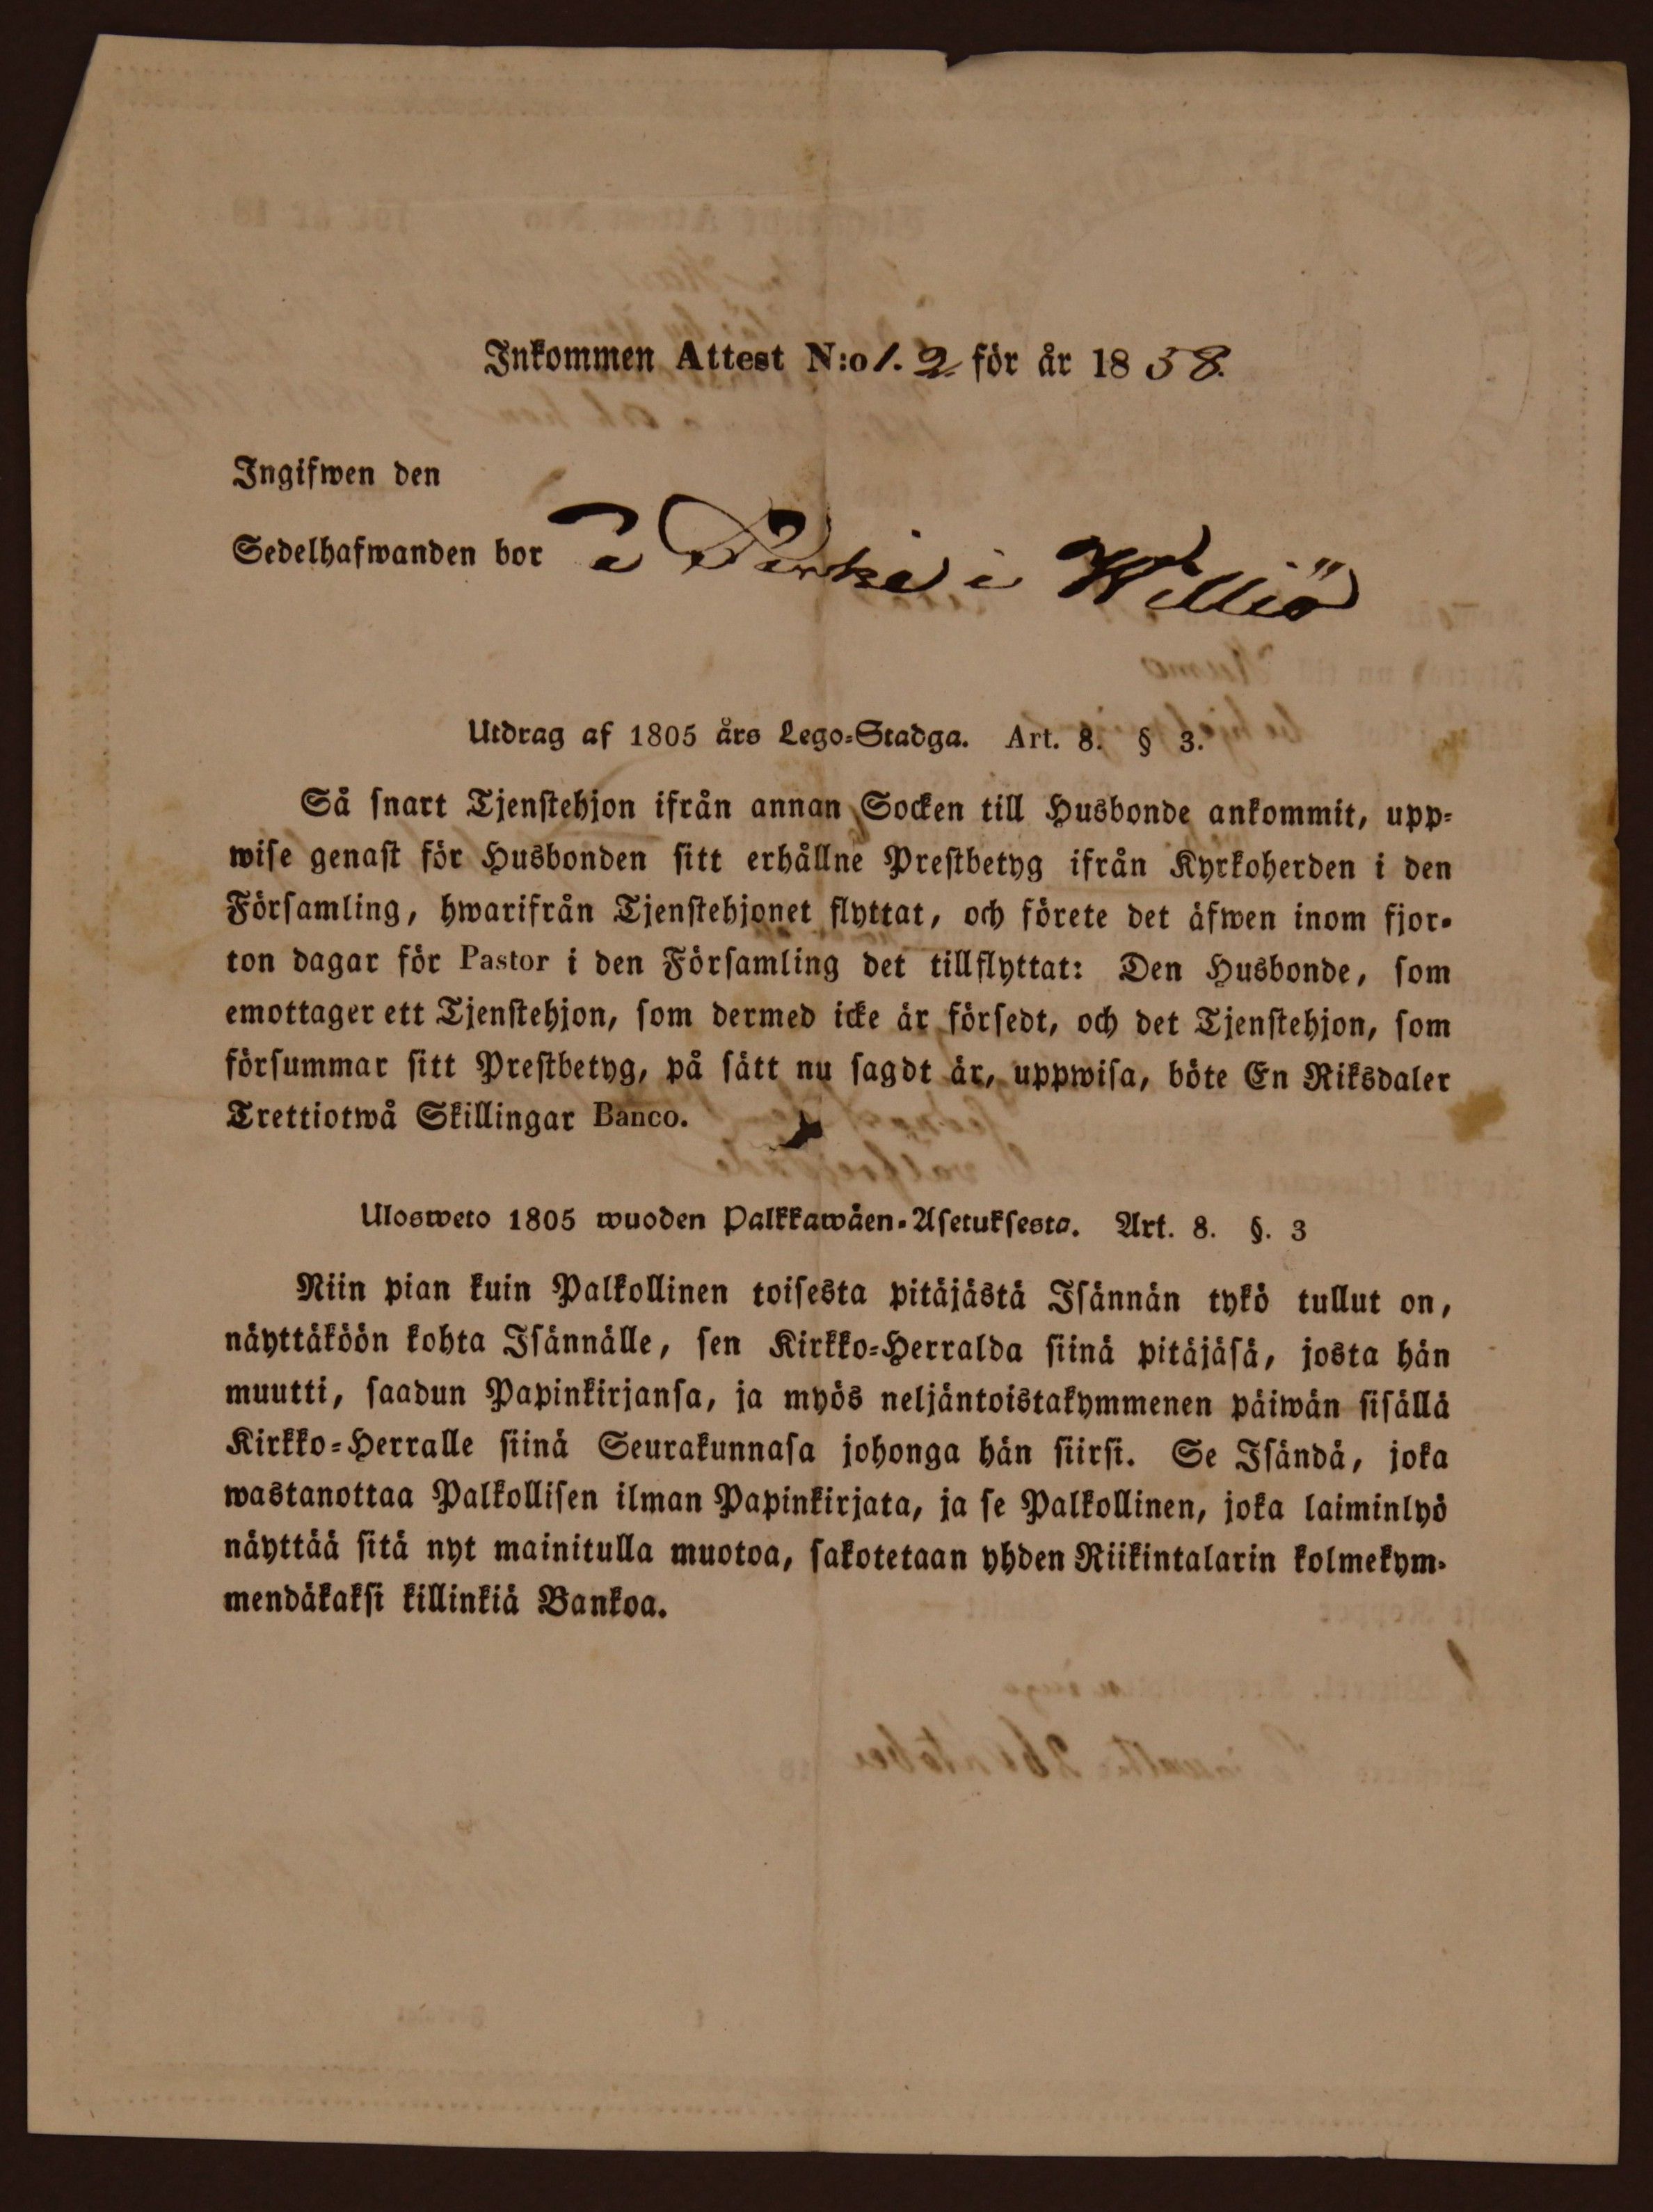 Inkommen Attest N:o 1. 2 för år 1858.
Ingifwen den
Sedelhafwanden bor i Perkiö i Williö
Utdrag af 1805 års Lego-Stadga. Art. 8. § 3.
Så snart Tjenstehjon ifrån annan Socken till Husbonde ankommit, upp-
wise genast för Husbonden sitt erhållne Prestbetyg ifrån Kyrkoherden i den
Församling, hwarifrån Tjenstehjonet flyttat, och förete det äfwen inom fjor-
ton dagar för Pastor i den Församling det tillflyttat: Den Husbonde, som
emottager ett Tjenstehjon, som dermed icke är försedt, och det Tjenstehjon, som
försummar sitt Prestbetyg, på sätt nu sagdt är, uppwisa, böte En Riksdaler
Trettiotwå Skillingar Banco.
Ulosweto 1805 wuoden Palkkawäen-Asetuksesta. Art. 8. §. 3
Niin pian kuin Palkollinen toisesta pitäjästä Isännän tykö tullut on,
näyttäköön kohta Isännälle, sen Kirkko-Herralda siinä pitäjäsä, josta hän
muutti, saadun Papinkirjansa, ja myös neljäntoistakymmenen päiwän sisällä
Kirkko-Herralle siinä Seurakunnasa johonga hän siirsi. Se Isändä, joka
wastanottaa Palkollisen ilman Papinkirjata, ja se Palkollinen, joka laiminlyö
näyttää sitä nyt mainitulla muotoa, sakotetaan yhden Riikintalarin kolmekym-
mendäkaksi killinkiä Bankoa.